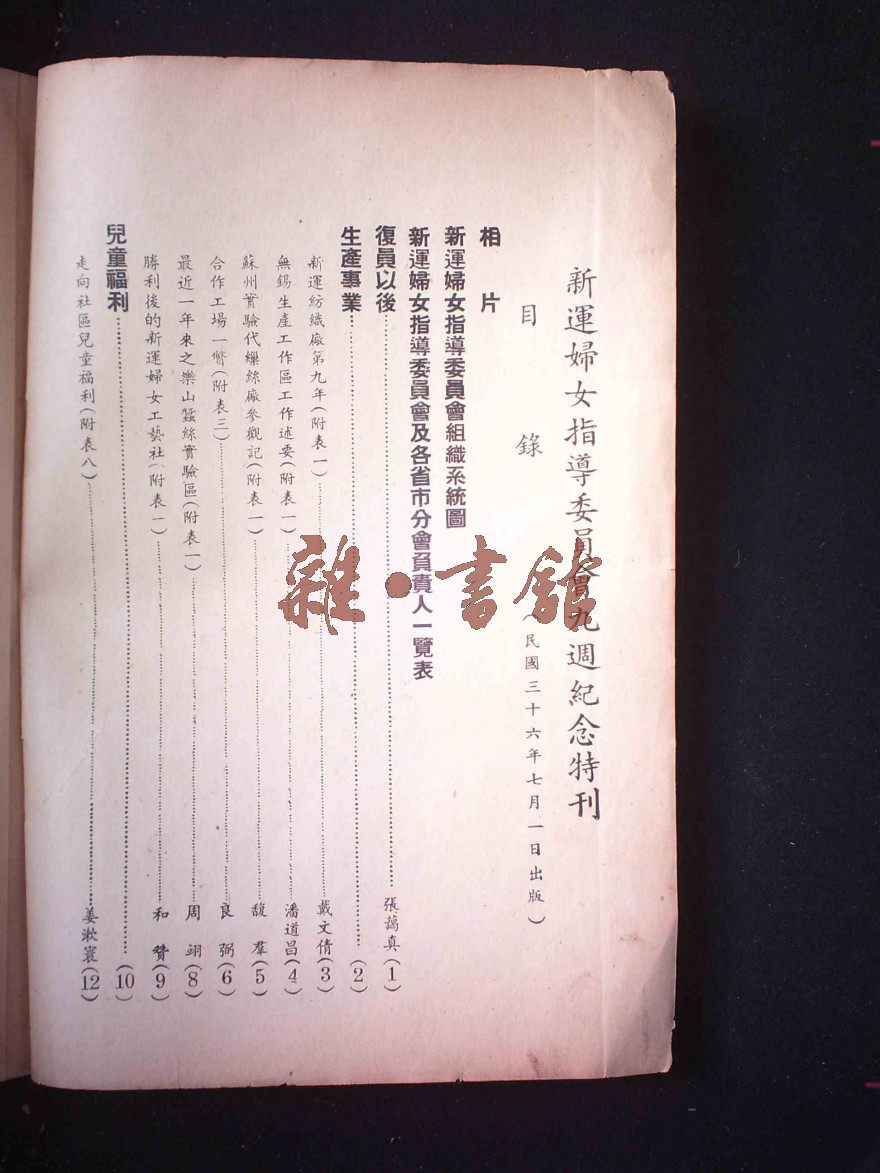 新運婦女指導委員會九週紀念特刊
目錄
（民國三十六年七月一日出版）
相片
新運婦女指導委員會組織系統圖
新運婦女指導委員會及各省市分會負責人一覽表
復員以後……張藹真（1）
生產事業……（2）
新運紡織廠第九年（附表一）……戴文倩（3）
無錫生產工作區工作述要（附表一）……潘道昌（4）
蘇州實驗代繅絲廠參觀記（附表一）……馥羣（5）
合作工場一瞥（附表三）……良弼（6）
最近一年來之樂山蠶絲實驗區（附表一）……周翊（8）
勝利後的新運婦女工藝社（附表一）……和贊（9）
兒童福利……（10）
走向社區兒童福利（附表八）……姜漱寰（12）
雜·書館